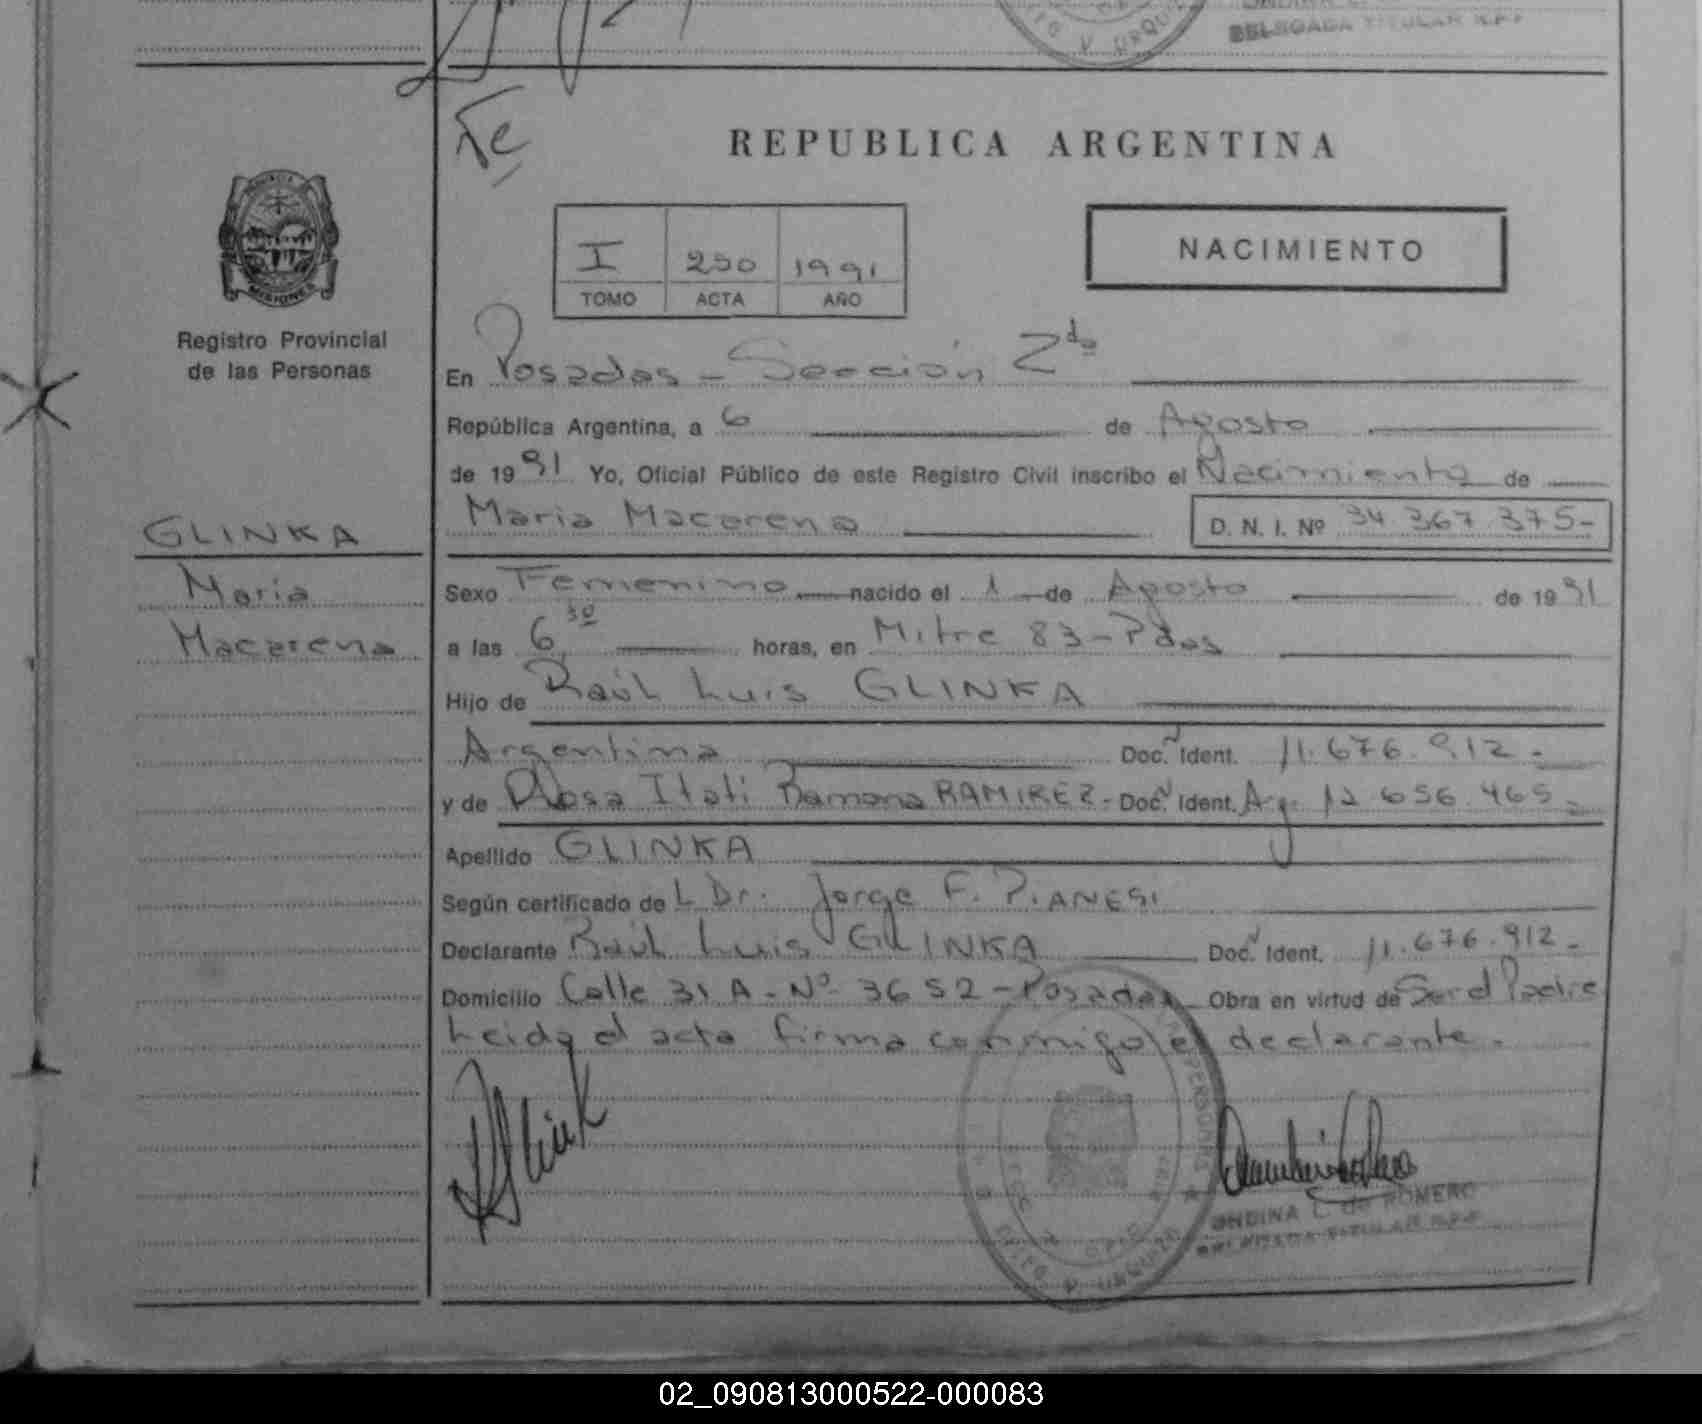 DELEGADA TITULAR R.P.P
Te
REPUBLICA ARGENTINA
MISIONES
I 290 1991
TOMO ACTA AÑO
NACIMIENTO
Registro Provincial
de las Personas
En Posadas - Sección 2da
República Argentina, a 6 de Agosto
de 1991 Yo, Oficial Público de este Registro Civil inscribo el Nacimiento de
Maria Macarena D. N. I. Nº 34.367.375-
GLINKA
Maria
Macarena
Sexo Femenino nacido el 1 de Agosto de 1991
a las 6,30 horas, en Mitre 83 - Pdas
Hijo de Raúl Luis GLINKA
Argentina Doc. Ident. 11.676.912.-
y de Rosa Itati Ramona RAMIREZ - Doc. Ident. Arg. 12.656.465.-
Apellido GLINKA
Según certificado de L Dr. Jorge F. PIANESI
Declarante Raúl Luis GLINKA Doc. Ident. 11.676.912.-
Domicilio Calle 31 A - Nº 3652 - Posadas Obra en virtud de Ser el Padre
Leida el acta firma conmigo el declarante.
ONDINA L. de ROMERO
DELEGADA TITULAR R.P.P
02_090813000522-000083